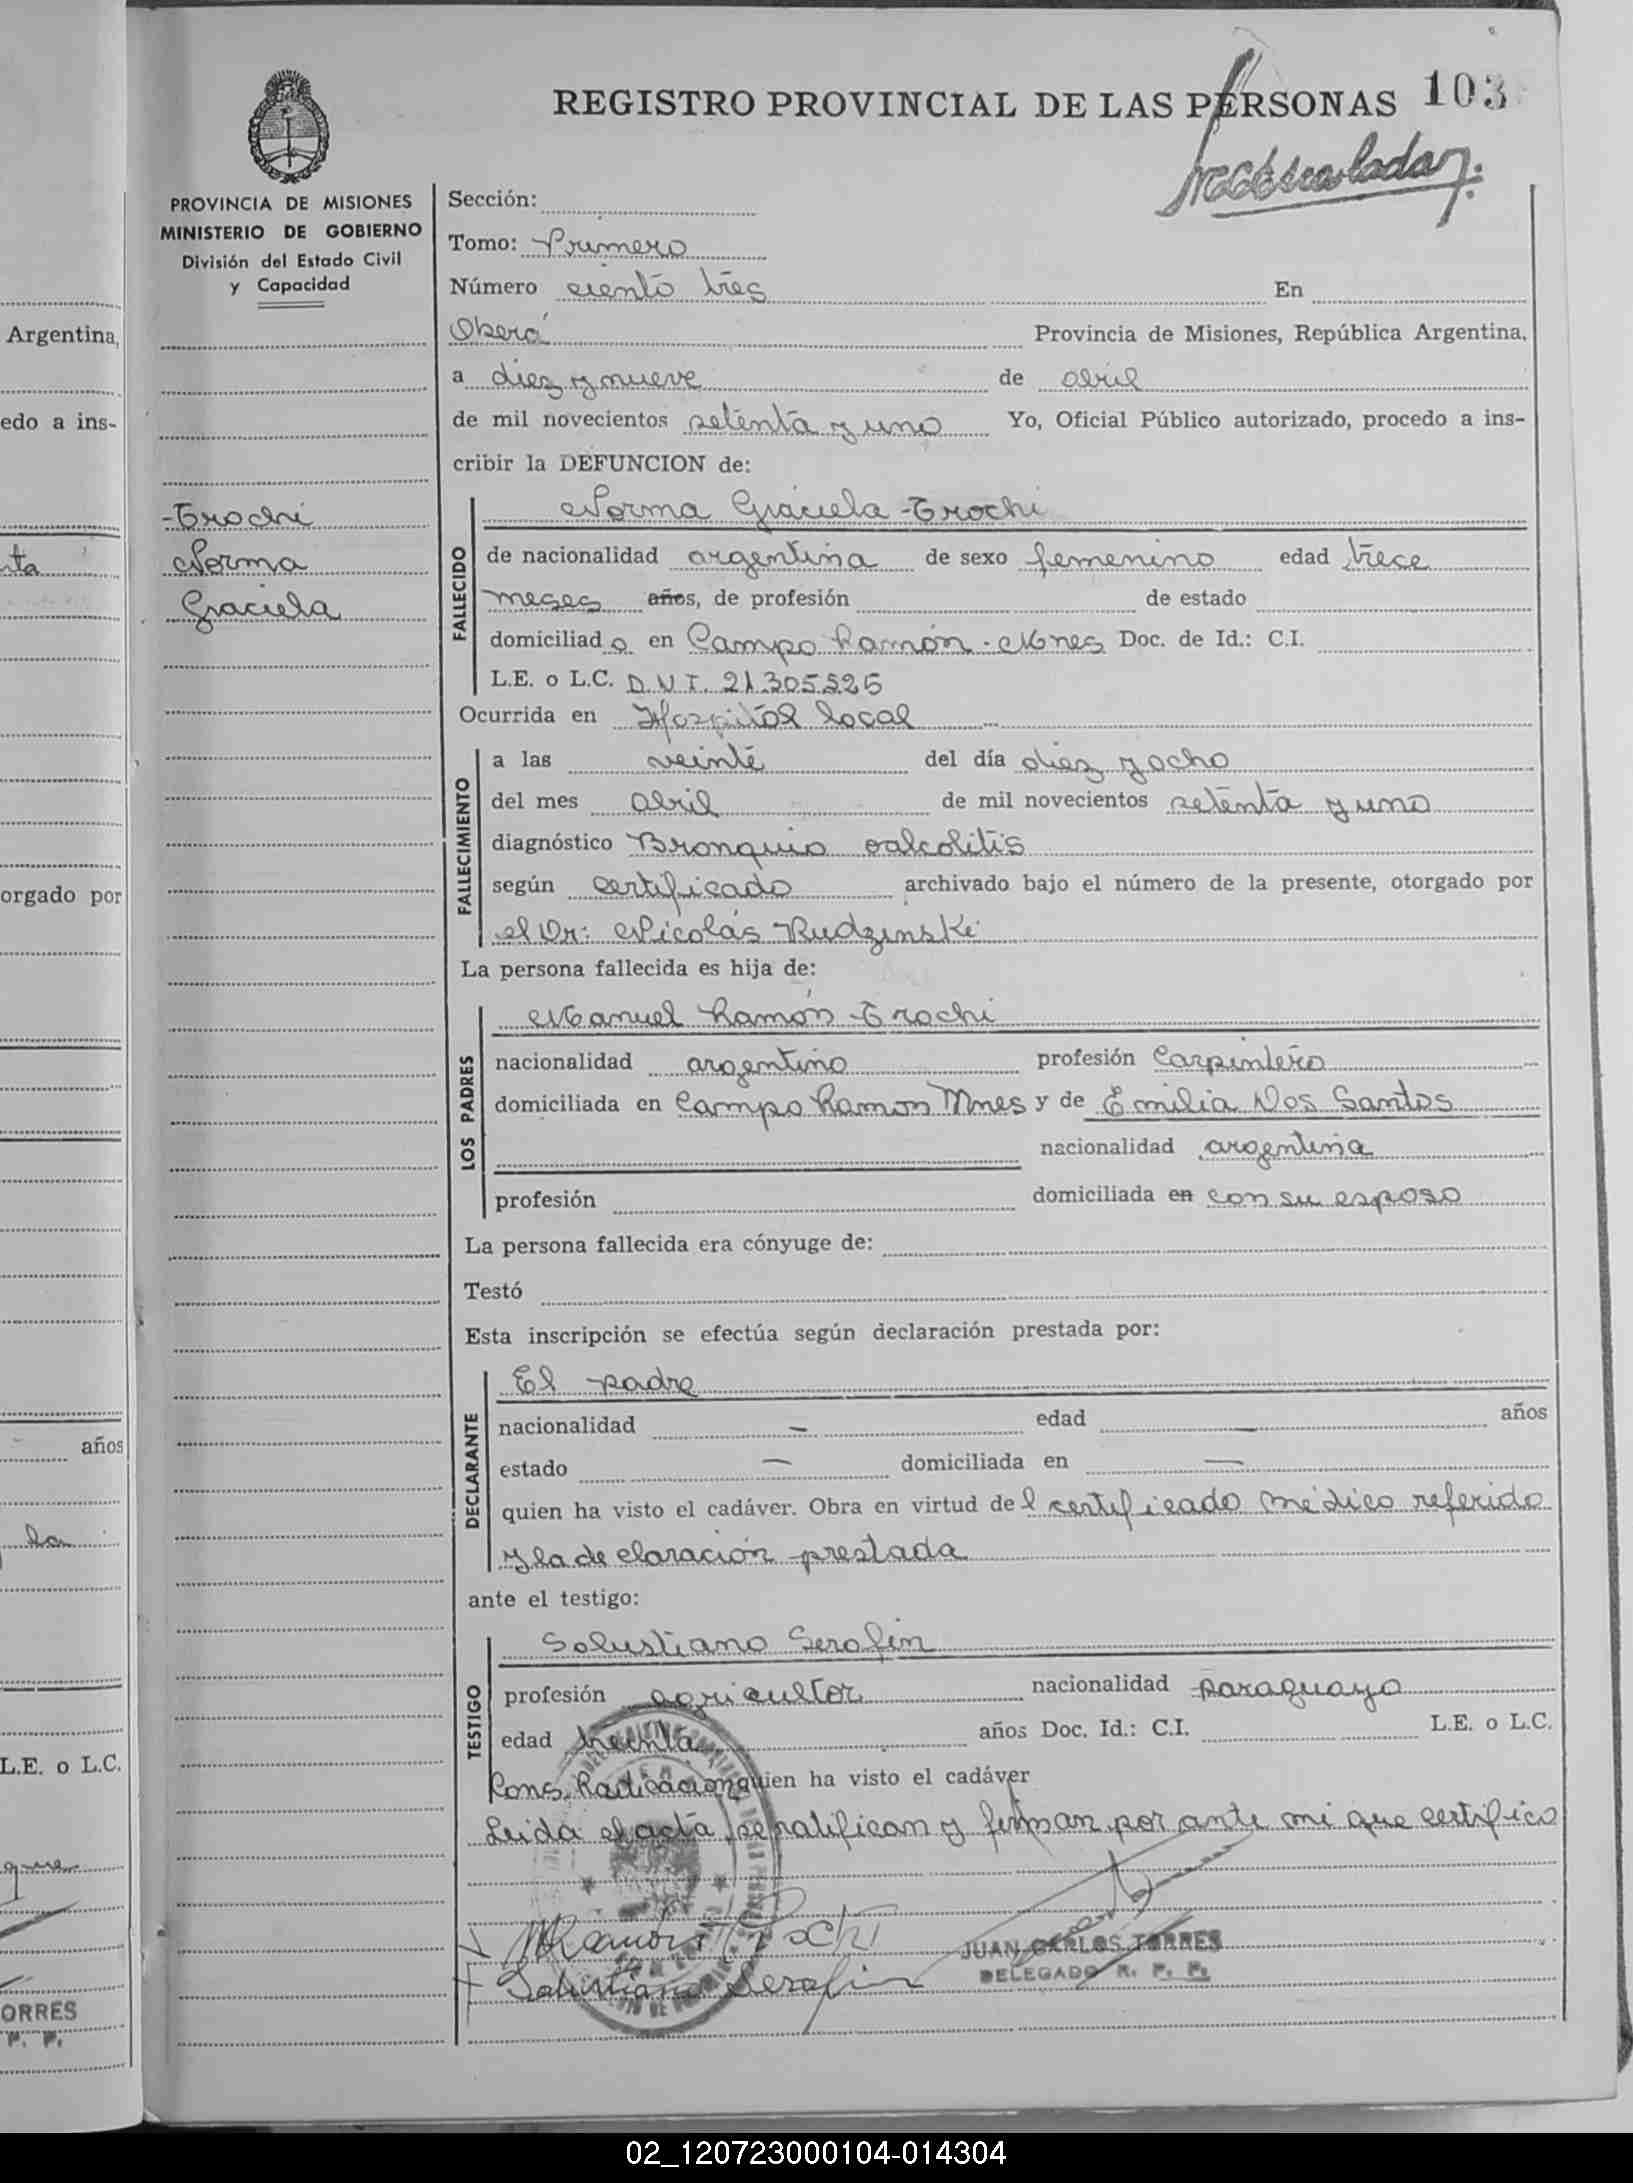 REGISTRO PROVINCIAL DE LAS PERSONAS 103
PROVINCIA DE MISIONES
MINISTERIO DE GOBIERNO
División del Estado Civil
y Capacidad
Trochi
Norma
Graciela
Sección:
Tomo: Primero
Número ciento tres En
Oberá Provincia de Misiones, República Argentina,
a diez y nueve de abril
de mil novecientos setenta y uno Yo, Oficial Público autorizado, procedo a ins-
cribir la DEFUNCION de:
Norma Graciela Trochi
FALLECIDO
de nacionalidad argentina de sexo femenino edad trece
meses años, de profesión de estado
domiciliad a en Campo Ramón - Mnes Doc. de Id.: C.I.
L.E. o L.C. D.N.I. 21.305.526
Ocurrida en Hospital local
FALLECIMIENTO
a las veinte del día diez y ocho
del mes abril de mil novecientos setenta y uno
diagnóstico Bronquio oalcolitis
según certificado archivado bajo el número de la presente, otorgado por
el Dr: Nicolás Rudzinski
La persona fallecida es hija de:
LOS PADRES
Manuel Ramón Trochi
nacionalidad argentino profesión Carpintero
domiciliada en Campo Ramon Mnes y de Emilia Dos Santos
nacionalidad argentina
profesión domiciliada en con su esposo
La persona fallecida era cónyuge de:
Testó
Esta inscripción se efectúa según declaración prestada por:
DECLARANTE
El padre
nacionalidad — edad — años
estado — domiciliada en —
quien ha visto el cadáver. Obra en virtud de l certificado médico referido
y la declaración prestada
ante el testigo:
TESTIGO
Solustiano Serafin
profesión agricultor nacionalidad paraguayo
edad treinta años Doc. Id.: C.I. L.E. o L.C.
Cons. Radicación quien ha visto el cadáver
Leida el acta, se ratifican y firman por ante mi que certifico
M Ramón Trochi
Solustiano Serafin
JUAN CARLOS TORRES
DELEGADO R. P. P.
Argentina,
edo a ins-
orgado por
años
la
L.E. o L.C.
que
ORRES
P. P.
02_120723000104-014304